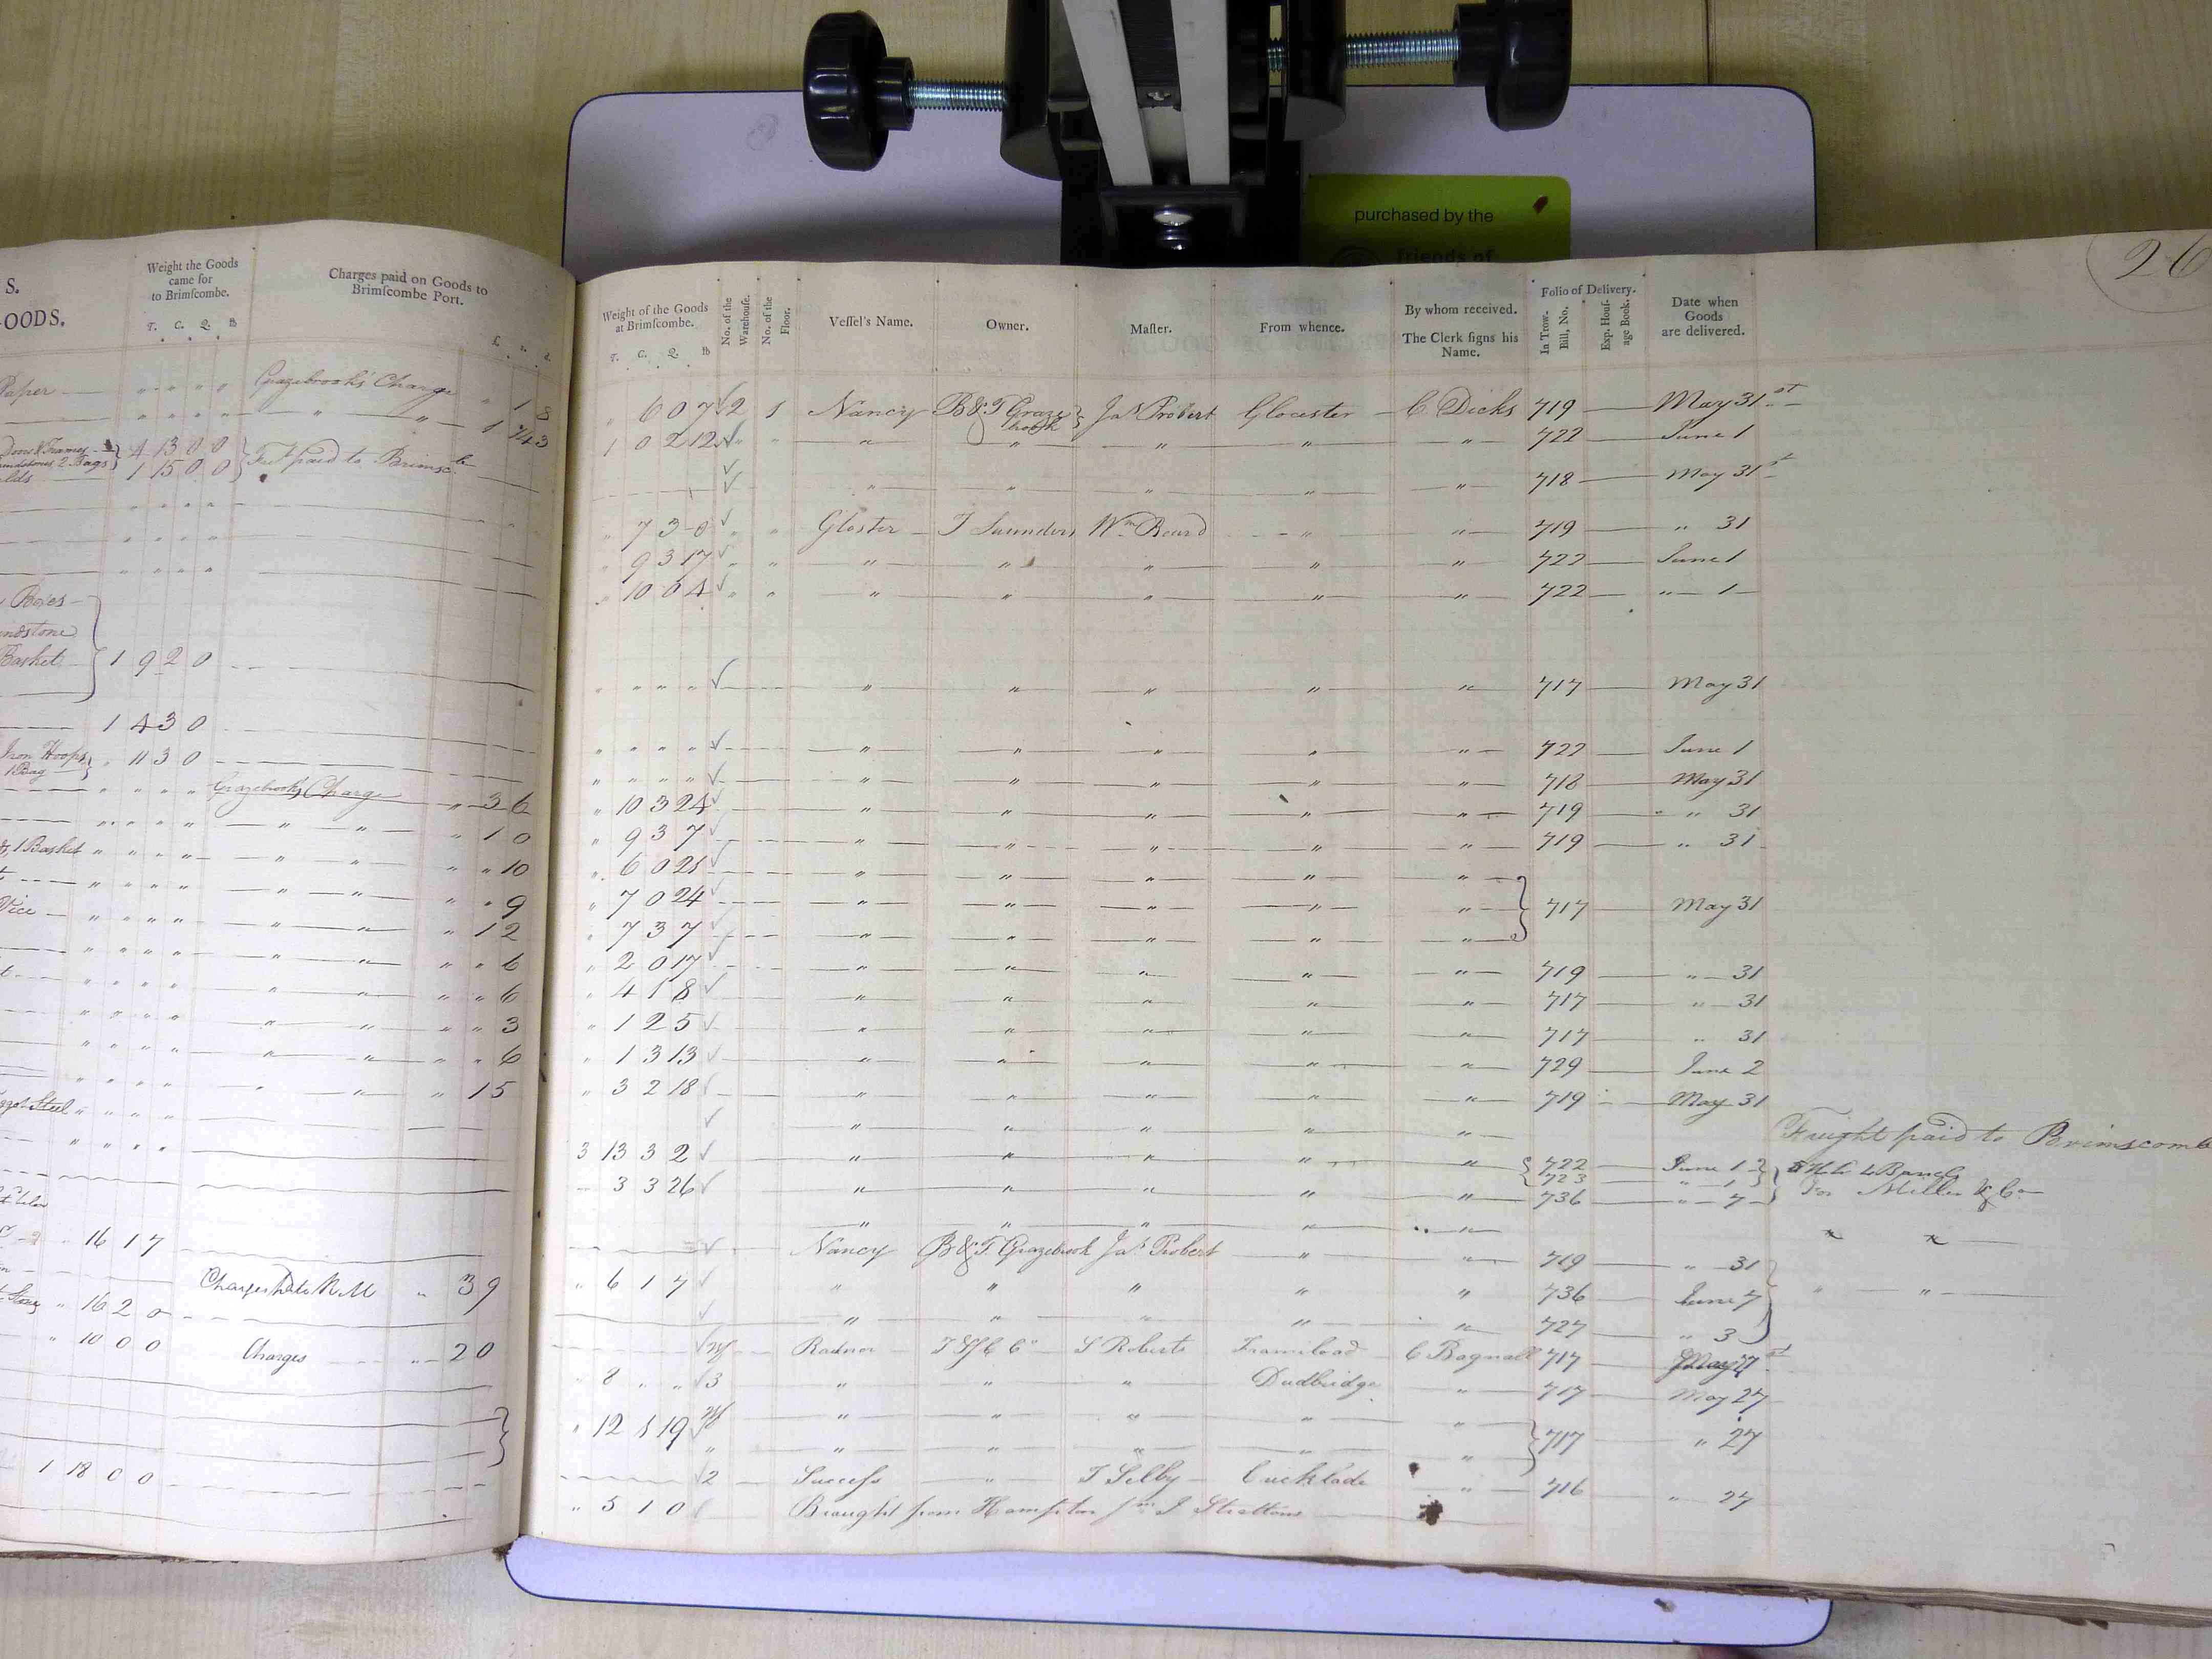 purchased by the
Friends of
26
S.
OODS.
Weight the Goods
came for
to Brimscombe.
T. C. Q. lb
Charges paid on Goods to
Brimscombe Port.
£. s. d.
Paper — " " " " Grazebrook's Charge " 1 8
4 13 0 0
1 15 0 0 } Frt paid to Brimsc
Boxes
Basket 1 9 2 0
1 4 3 0
Iron Hoops
1 Bag " 11 3 0
" " " " Grazebrooks Charge " 3 6
" " " " " " " 1 0
1 Basket " " " " " " " " 10
" " " " " " " " 9
Vice " " " " " " " 1 2
" " " " " " " " 6
" " " " " " " " 6
" " " " " " " " 3
" " " " " " " " 6
" " " " " " " 1 5
Steel " " " "
" " " "
" 16 1 7
Charges " 3 9
" 16 2 0
" 10 0 0 Charges " 2 0
1 18 0 0
Weight of the Goods
at Brimscombe.
T. C. Q. lb
No. of the
Warehouse.
No. of the
Floor.
Vessel's Name.
Owner.
Master.
From whence.
By whom received.
The Clerk signs his
Name.
Folio of Delivery.
In Trow.
Bill, No.
Exp. Hous-
age Book.
Date when
Goods
are delivered.
" 6 0 7 ✓ 2 1 Nancy B & T Graze brook } Jas Probert Glocester C. Dicks 719 May 31st
1 0 2 12 ✓ " " " " " " " 722 June 1
✓ " " " " " 718 May 31st
" 7 3 0 ✓ " " Gloster T Saunders Wm Beard " " 719 " 31
" 9 3 17 ✓ " " " " " " " 722 June 1
" 10 0 4 ✓ " " " " " " " 722 " 1
" " " " ✓ " " " " " 717 May 31
" " " " ✓ " " " " " 722 June 1
" " " " ✓ " " " " " 718 May 31
" 10 3 24 ✓ " " " " " 719 " 31
" 9 3 7 ✓ " " " " " 719 " 31
" 6 0 21 ✓ " " " " "
" 7 0 24 ✓ " " " " " } 717 May 31
" 7 3 7 ✓ " " " " "
" 2 0 17 ✓ " " " " " 719 " 31
" 4 1 8 ✓ " " " " " 717 " 31
" 1 2 5 ✓ " " " " " 717 " 31
" 1 3 13 ✓ " " " " " 729 June 2
" 3 2 18 ✓ " " " " " 719 May 31
✓ " " " " " Freight paid to Brimscomb
3 13 3 2 ✓ " " " " " { 722 June 1
723 " 1
" 3 3 26 ✓ " " " " " 736 " 7 } For Miller & Co
" " " " "
✓ Nancy B & T. Grazebrook Jas Probert " " 719 " 31
" 6 1 7 ✓ " " " " " 736 June 7 " "
✓ " " " " " 727 " 3
✓ Radnor S Roberts Framiload C Bagnall 717 May 27
" 8 " " ✓ 3 " " " Dudbridge " 717 May 27
" 12 1 19 ✓ " " " " " } 717 " 27
" " " " " "
✓ 2 Success " T Selby Cricklade " 716 " 27
" 5 1 0 ✓ Braught from Hampton J Strattons